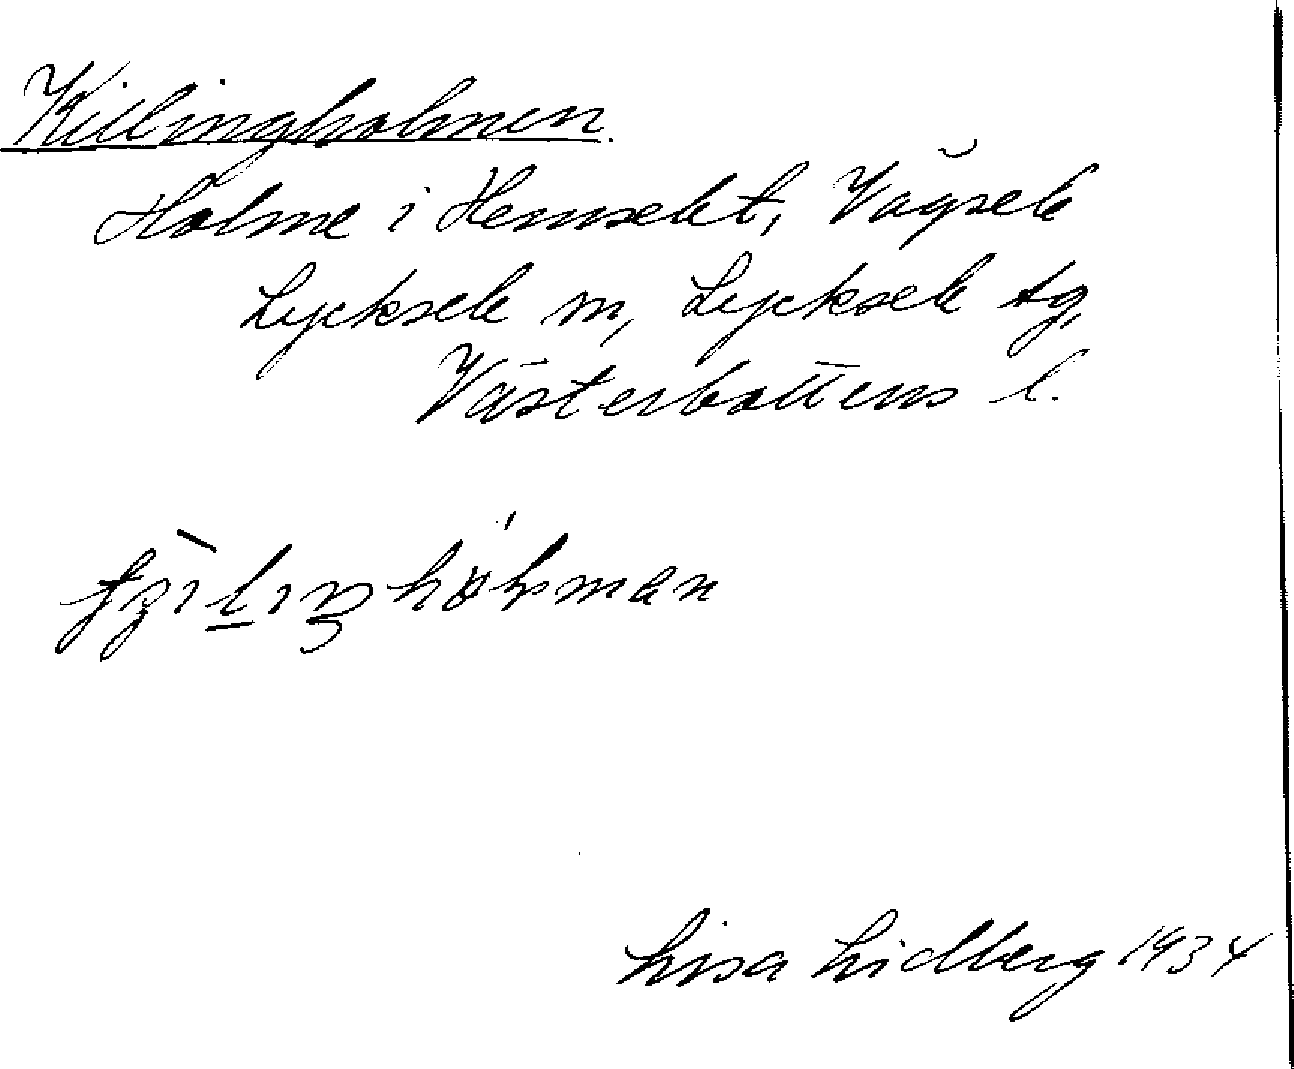 Killingholmen.
Holme i Hemselet, Vägsele
Lycksele sn, Lycksele tg,
Västerbottens l.
Lisa Lidberg 1934